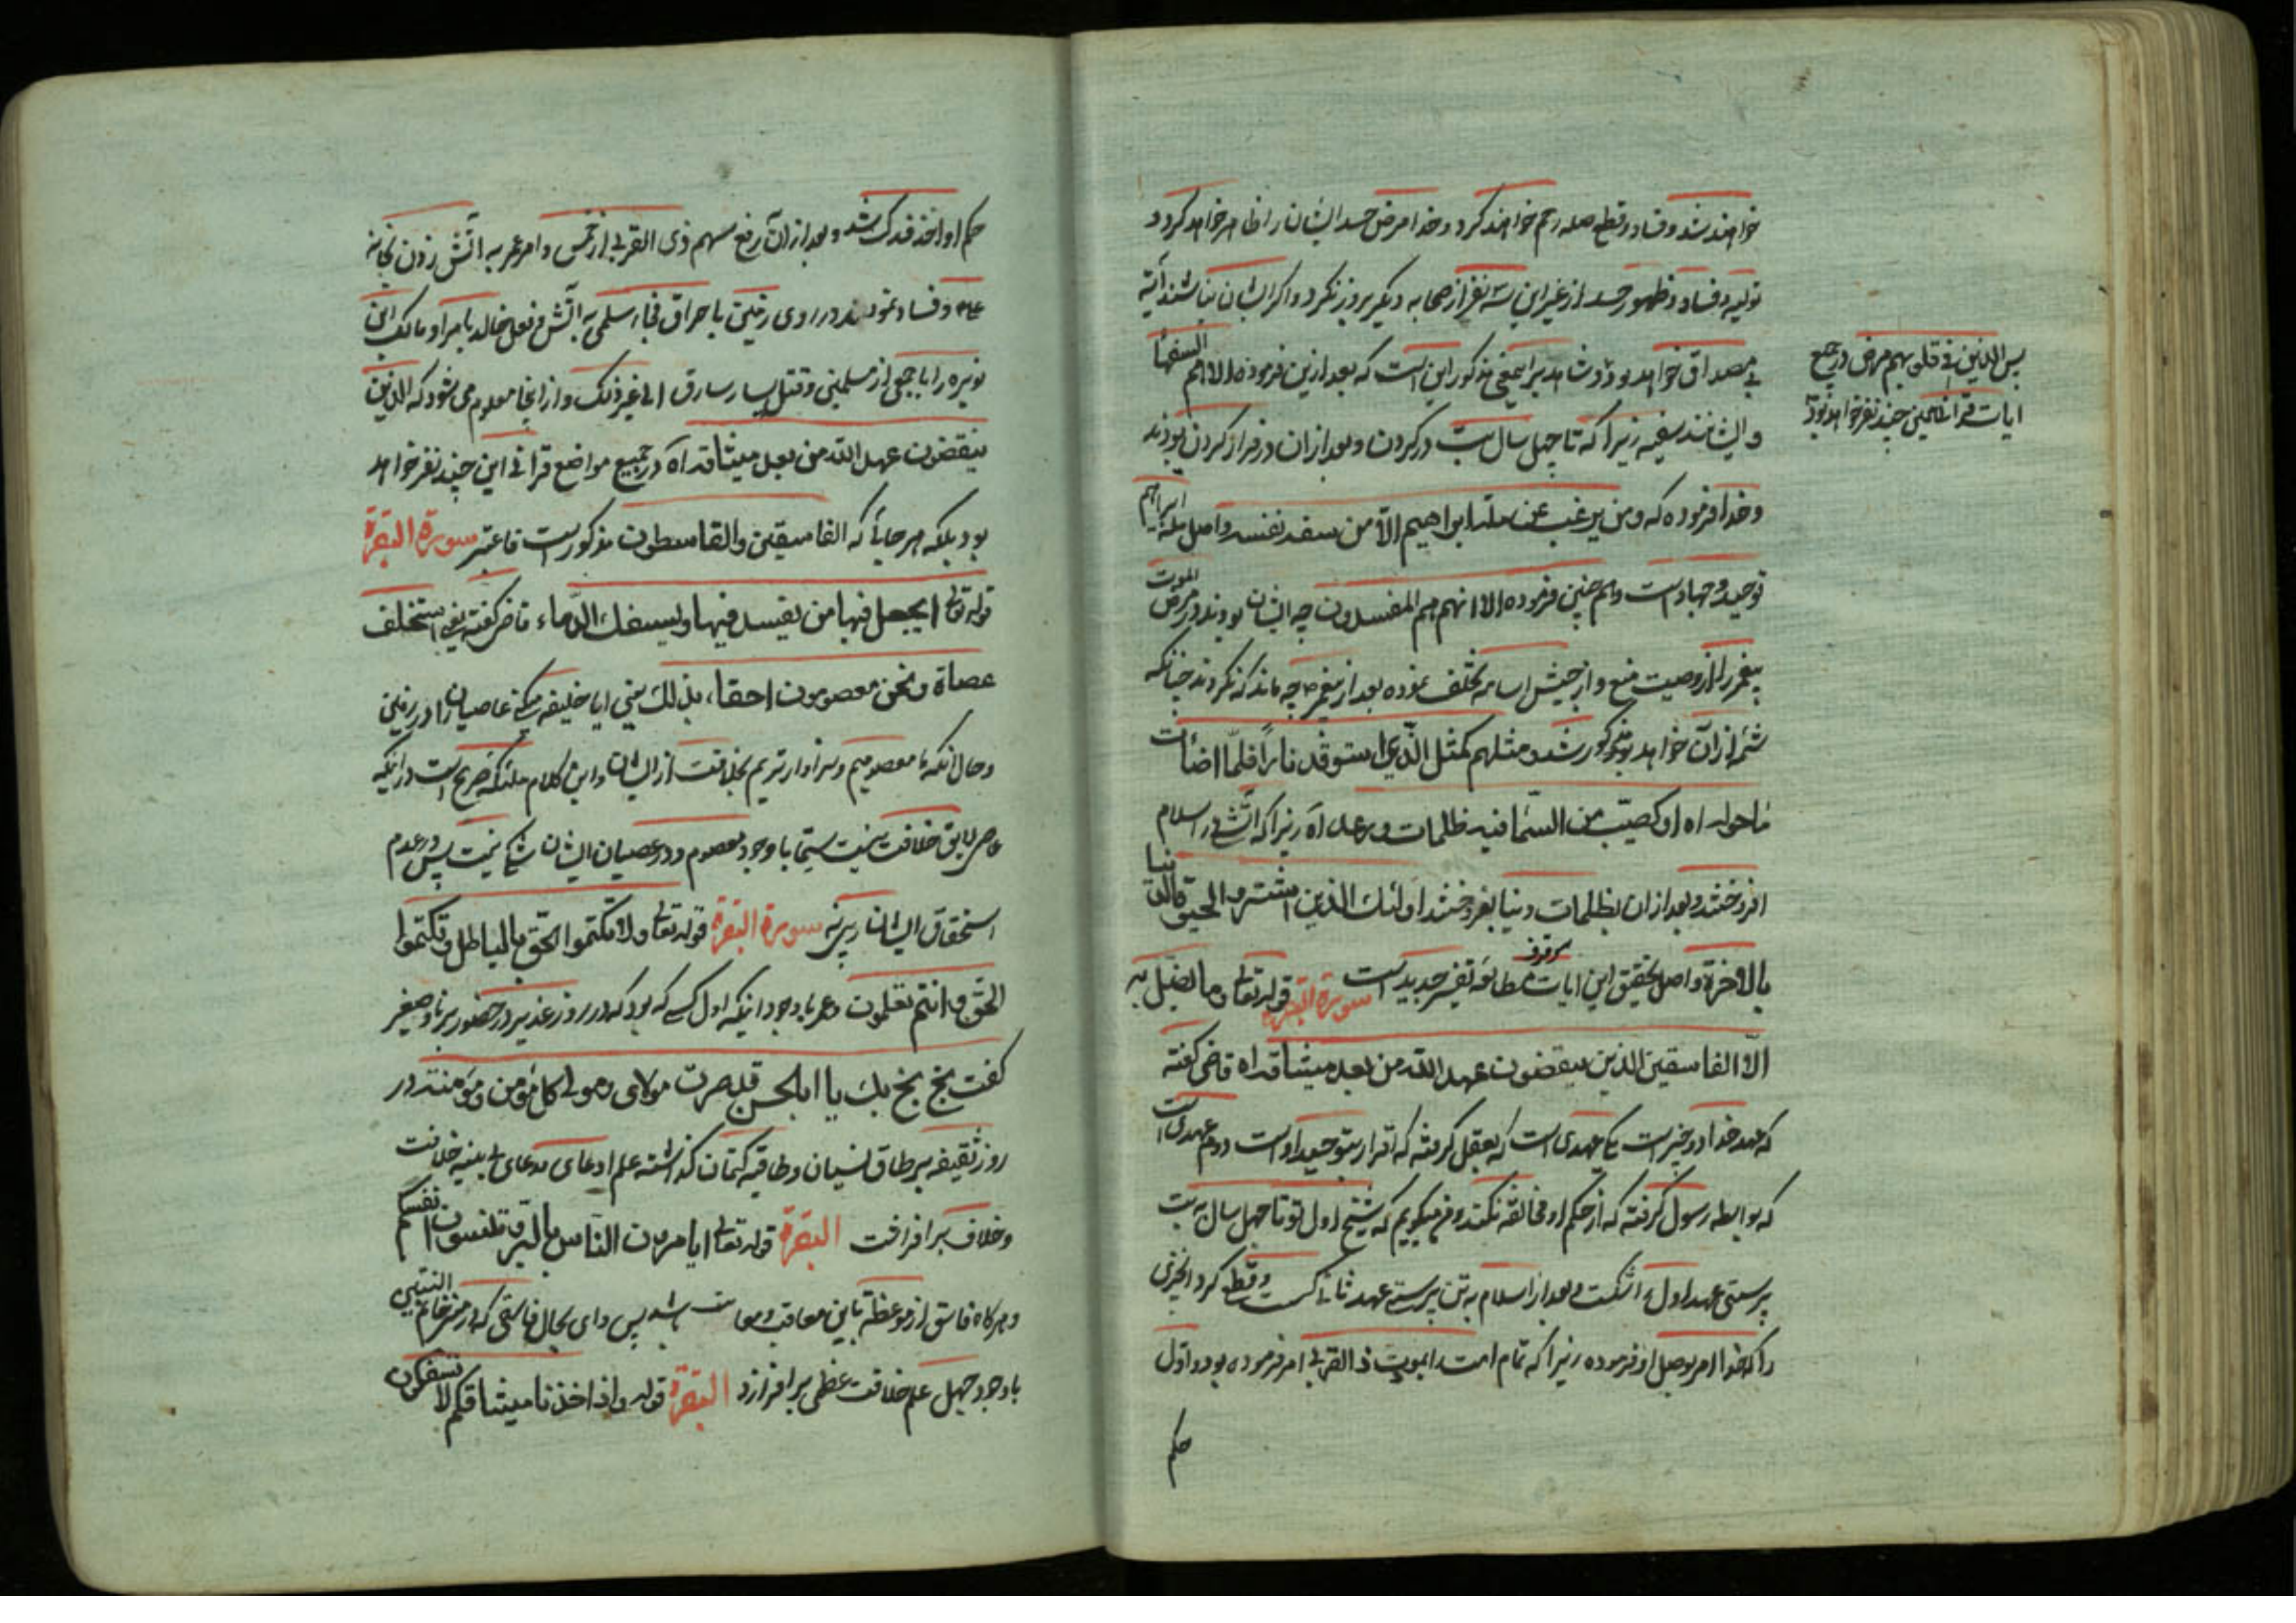 خواهند شد و فساد و قطع صله رحم خواهند کرد و خدا مرض حسد ایشان را ظاهر خواهد کرد و
تولیه و فساد و ظهور حسد از غیر این سه نفر از صحابه دیگر بروز نکرد و اگر ایشان نباشند آیة
بی مصداق خواهد بود و شاهد براین معنی مذکور این است که بعد ازین فرموده الا انهم هم السفهاء
و ایشانند سفیه زیرا که تا چهل سال بت در گردن و بعد از ان در فرار کردن بودند
و خدا فرموده که ومن یرغب عن ملة ابراهیم الا من سفه نفسه و اصل ملة ابراهیم
توحید و جهاد است و هم چنین فرموده الا انهم هم المفسدون چه ایشان بودند در مرض الموت
پیغمبر را از وصیت منع و از جیش اسامه تخلف نموده بعد از پیغمبر ص چه ماند که نکردند چنانکه
شمه از ان خواهد مذکور شد و مثلهم کمثل الّذی استوقد ناراً فلمّا اضائت
ماحوله اه او کصیّب من السّماء فیه ظلمات ورعد اه زیرا که آتش در اسلام
افروختند و بعد از ان بظلمات دنیا بفروختند اولئك الذین اشتروا الحیوة الدنیا
بالاخرة و اصل تحقیق این ایات موقوف بمطالعه تفسیر جدید است سورة البقرة قوله تعالی وما یضل به
الّا الفاسقین الذین ینقضون عهد الله من بعد میثاقه اه قاضی گفته
که عهد خدا دو چیز است یکی عهدی است که بعقل گرفته که اقرار بتوحید او است دوم عهدی است
که بواسطه رسول گرفته که از حکم او مخالفه نکنند و من میگویم که شیخ اول تو تا چهل سال به بت
پرستی عهد اول را شکست و بعد از اسلام به تن پرستی عهد ثانی گسست و قطع کرد انچیزی
را که خدا امر بوصل او فرموده زیرا که تمام امت را بمودت ذی القربی امر فرموده بود و اول
حکم
پس الذین فی قلوبهم مرض در جمیع
ایات قرآنی همین چند نفر خواهند بود
حکم او اخذ فدک شد و بعد از ان رفع سهم ذی القربی از خمس و امر عمر به آتش زدن خانه
و فساد نمودند در روی زمین باحراق فجاءة سلمی به آتش و فعل خالد بامر او مالک ابن
نویره را با جمعی از مسلمین و قتل یسار سارق الی غیر ذلک و از اینجا معلوم می شود که الذین
ینقضون عهد الله من بعد میثاقه اه در جمیع مواضع قرانی این چند نفر خواهد
بود بلکه هر جائی که الفاسقین والقاسطون مذکور است فاعتبر سورة البقرة
قوله تعالی اتجعل فیها من یفسد فیها ویسفك الدّماء قاضی گفته یعنی استخلف
عصاة ونحن معصومون احقاء بذلك یعنی ایا خلیفه میکنی عاصیان را در زمین
و حال انکه ما معصومیم و سزاوارتریم بخلافت از ایشان و این کلام ملئکه صریح است در اینکه
عاصی لایق خلافت نیست سیّما با وجود معصوم و در عصیان ایشان شکی نیست پس در عدم
استحقاق ایشان سورة البقرة قوله تعالی ولا تکتموا الحق بالباطل وتکتموا
الحق وانتم تعلمون و عمر با وجود اینکه اول کسی که بود که در روز غدیر در حضور برنا و صغیر
گفت بخ بخ بك یا ابا الحسن قد صرت مولای ومولی کل مؤمن ومؤمنة در
روز ثقیفه بر طاق نسیان و طاقیه کتمان گذاشته علم ادعای مدعای بی بینه خلافت
و خلاف برافراخت البقرة قوله تعالی اتامرون الناس بالبرّ وتنسون انفسکم
و هر گاه فاسق از موعظه باین معاقب و معاتب باشد پس وای بحال فاسقی که در منبر خاتم النبیین
با وجود جهل علم خلافت عظمی برافرازد البقرة قوله واذ اخذنا میثاقکم لا تسفکون